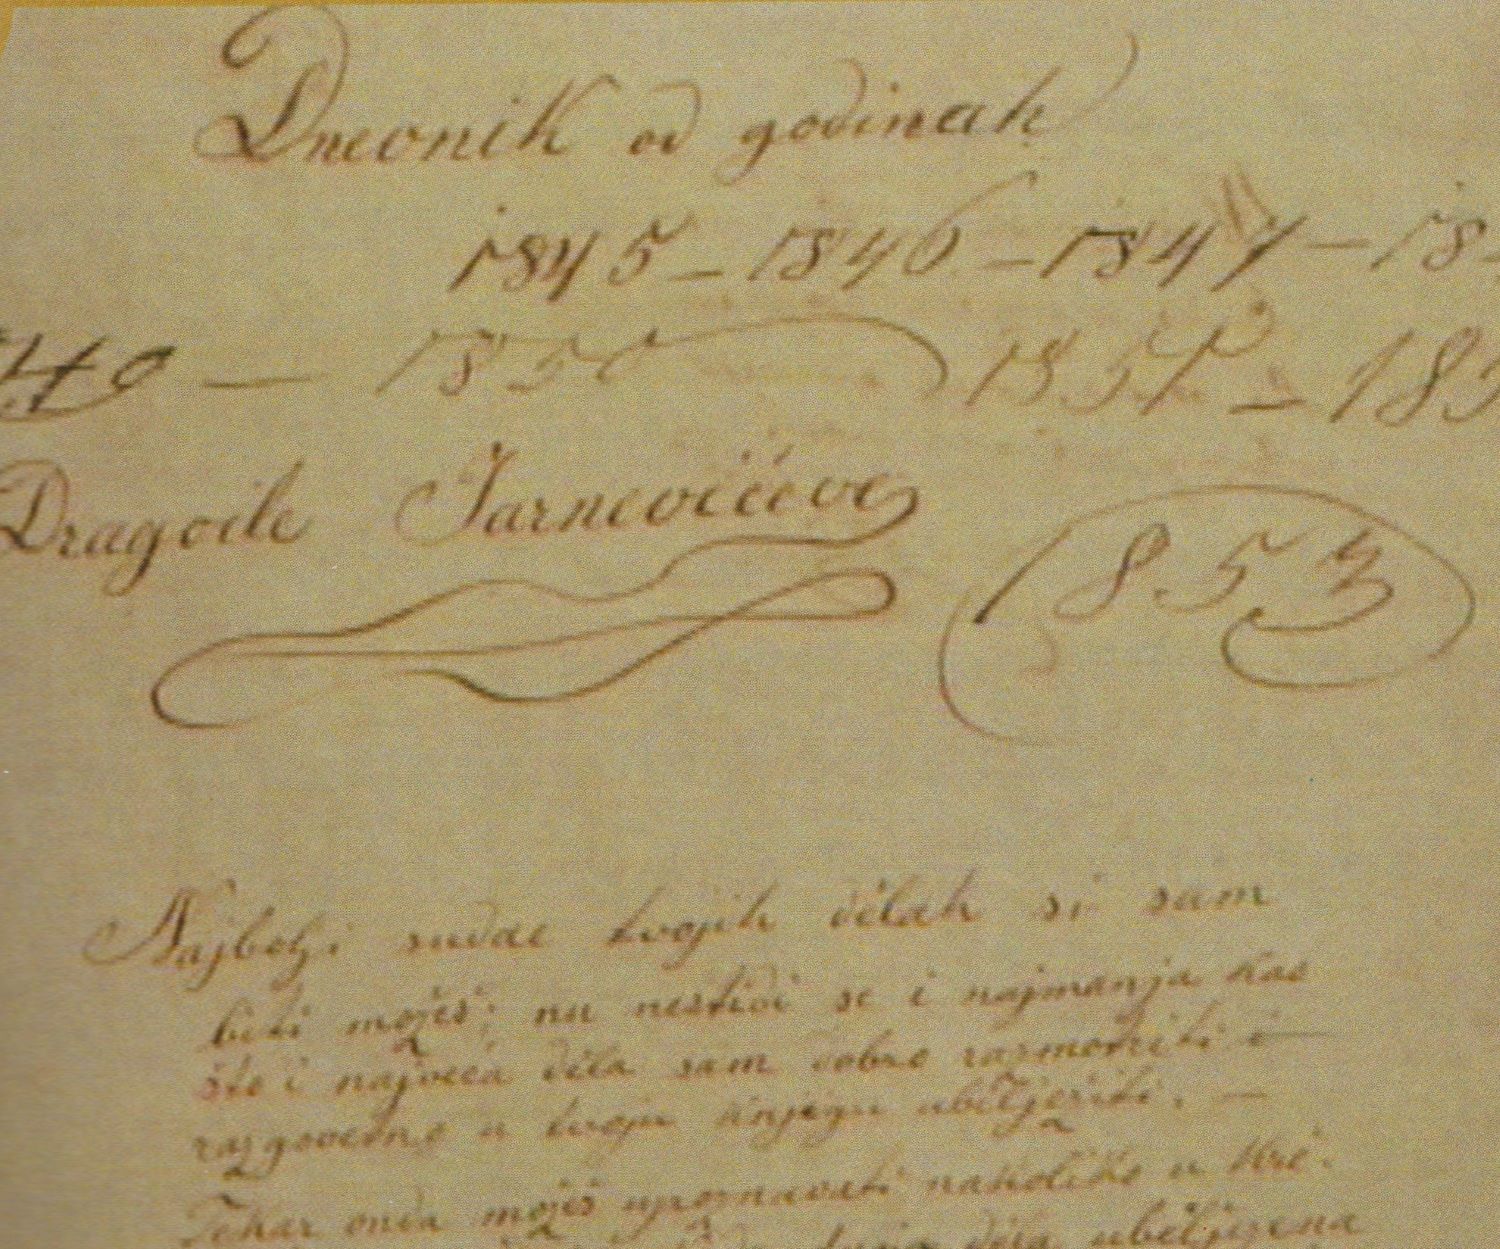 Dnevnik od godinah
1845 – 1846 – 1847 – 18
1850 1851 – 185
Dragoile Jarnevićeve
1853
Najbolji sudac tvojih dělah si sam
biti možeš; nu nestidi se i najmanja kao
što i največa děla sam dobro razmotriti i
razgovetno u tvoju knjigu ubělježiti. –
Tekar onda možeš upoznavati nakoliko u
děla ubělježena